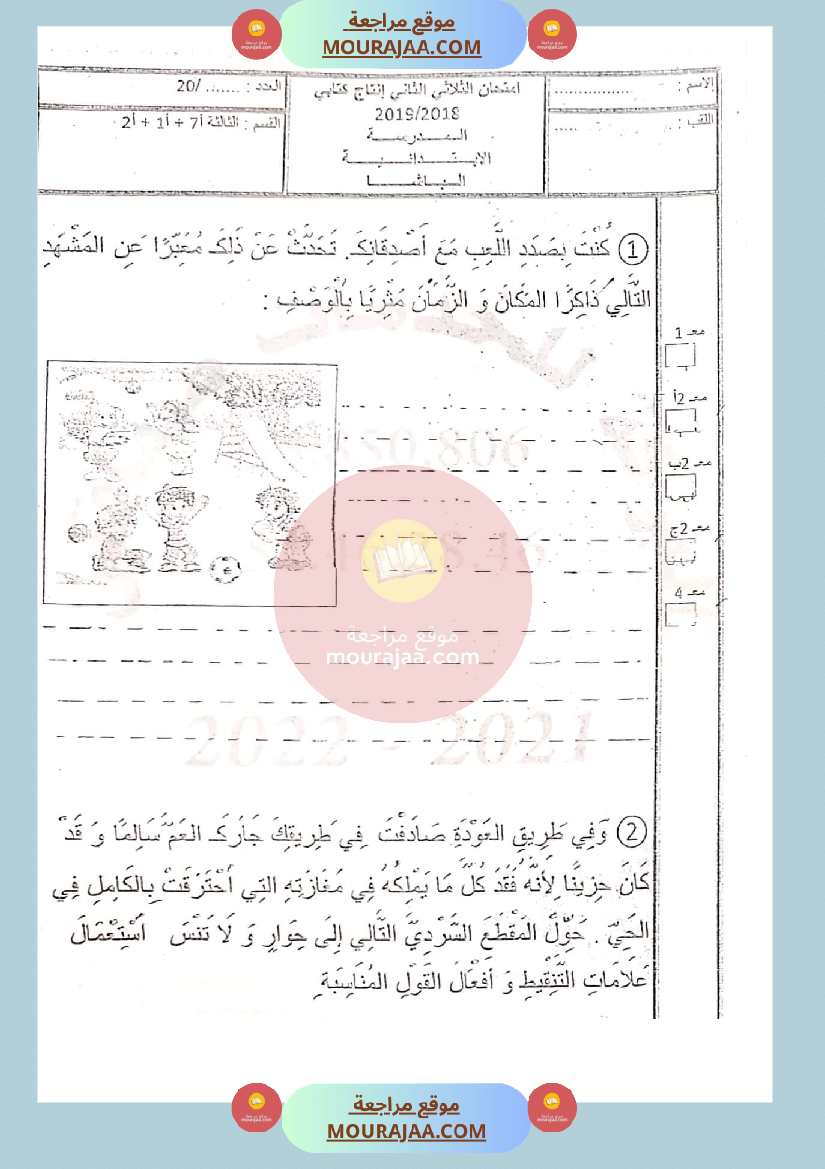 موقع مراجعة
MOURAJAA.COM
الاسم : ................
اللقب : ..... ......
امتحان الثلاثي الثاني إنتاج كتابي
2019/2018
المدرسة
الابتدائية
الباشا
العدد : ....... /20
القسم : الثالثة أ7 + أ1 + أ2
① كُنْتَ بِصَدَدِ اللَّعِبِ مَعَ أَصْدِقَائِكَ. تَحَدَّثْ عَنْ ذَلِكَ مُعَبِّرًا عَنِ المَشْهَدِ
التَّالِي ذَاكِرًا المَكَانَ وَ الزَّمَانَ مُثْرِيًا بِالْوَصْفِ :
معـ 1
معـ 2أ
معـ 2ب
معـ 2ج
معـ 4
850.806
موقع مراجعة
mourajaa.com
2022 - 2021
② وَفِي طَرِيقِ العَوْدَةِ صَادَفْتَ فِي طَرِيقِكَ جَارَكَ العَمَّ سَالِمًا وَ قَدْ
كَانَ حَزِينًا لِأَنَّهُ فَقَدَ كُلَّ مَا يَمْلِكُهُ فِي مَغَازَتِهِ التِي احْتَرَقَتْ بِالكَامِلِ فِي
الحَيِّ . حَوِّلْ المَقْطَعَ السَّرْدِيَّ التَّالِي إِلَى حِوَارٍ وَ لَا تَنْسَ اسْتِعْمَالَ
عَلَامَاتِ التَّنْقِيطِ وَ أَفْعَالَ القَوْلِ المُنَاسِبَةِ
موقع مراجعة
MOURAJAA.COM